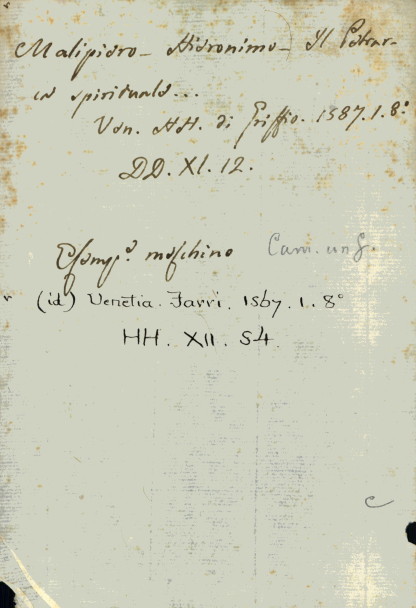 Malipiero - Hieronimo - Il Petrar-
ca spirituale...
Ven. HH. di Griffio. 1587. 1. 8°
DD. XI. 12.
Esemp.e meschino Cam. ung.
(id) Venetia. Farri. 1567. 1. 8°
HH. XII. 54
c